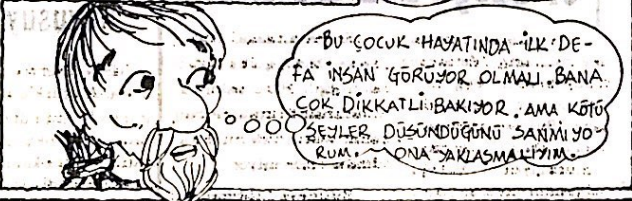 BU ÇOCUK HAYATINDA İLK DE-
FA İNSAN GÖRÜYOR OLMALI. BANA
ÇOK DİKKATLİ BAKIYOR. AMA KÖTÜ
ŞEYLER DÜŞÜNDÜĞÜNÜ SANMIYO-
RUM. ONA YAKLAŞMALIYIM.